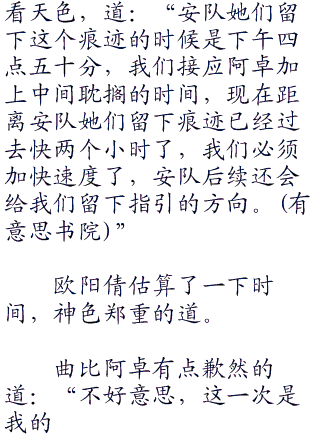 看天色，道：“安队她们留
下这个痕迹的时候是下午四
点五十分，我们接应阿卓加
上中间耽搁的时间，现在距
离安队她们留下痕迹已经过
去快两个小时了，我们必须
加快速度了，安队后续还会
给我们留下指引的方向。(有
意思书院)”
欧阳倩估算了一下时
间，神色郑重的道。
曲比阿卓有点歉然的
道：“不好意思，这一次是
我的